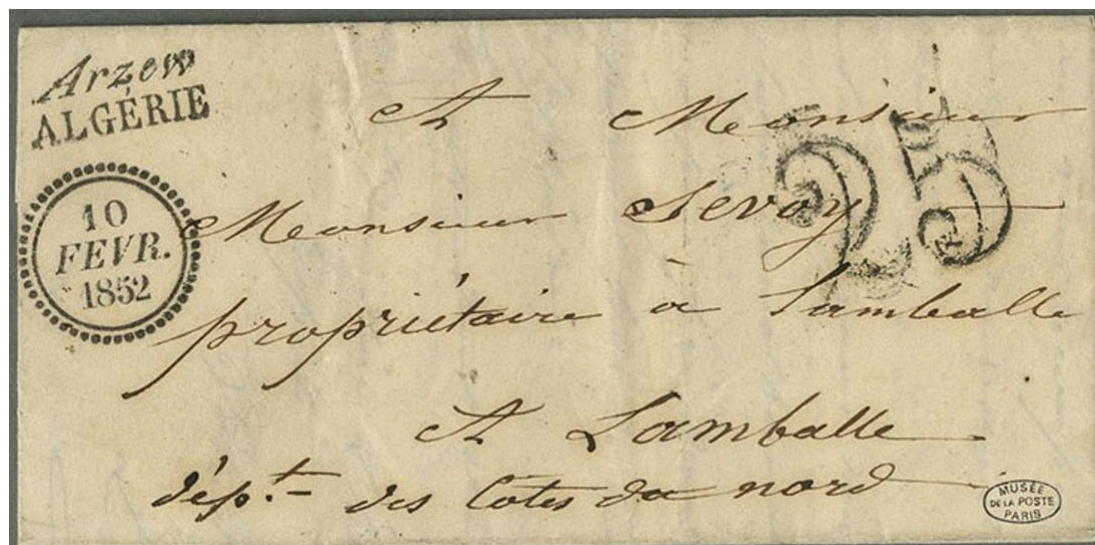 Arzew
ALGÉRIE
10
FEVR.
1852
25
A Monsieur
Monsieur Sevoy
propriétaire à Lamballe
A Lamballe
dép.t des Côtes du nord
MUSÉE
DE LA POSTE
PARIS